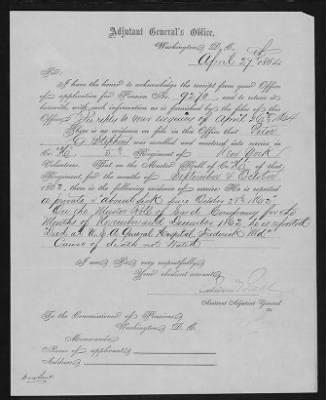 Adjutant General's Office,
Washington, D. C.
April 29th 1864
Sir:
I have the honor to acknowledge the receipt from your Office
of application for Pension No. and to return it
herewith, with such information as is furnished by the files of this
Office. In reply to your inquiry of April 26th 1864
There is no evidence on file in this Office that Peter
was enrolled and mustered into service in
Co. 5th Regiment of New York
Volunteers. But on the Muster Roll of Co. of that
Regiment, for the months of September & October
1862, there is the following evidence of service: He is reported
a private, "absent sick since October 28th 1862"
On the Muster Rolls of said Company for the
Months of November and December 1862, he is reported
"Died at U.S.A. General Hospital, Frederick Md."
Cause of death not stated
I am Sir, very respectfully,
Your obedient servant,
Assistant Adjutant General
To the Commissioner of Pensions,
Washington, D. C.
Memoranda
Name of applicant
Address